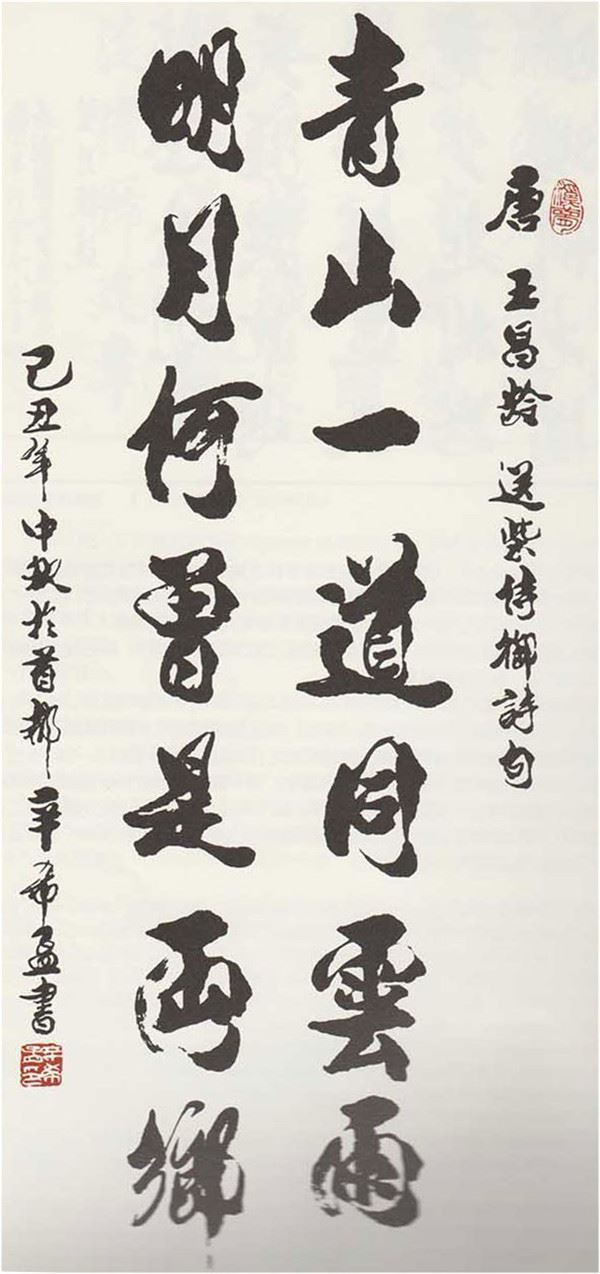 唐 王昌龄 送柴侍御诗句
青山一道同雲雨
明月何曾是两鄉
己丑年中秋於首都 辛希孟書